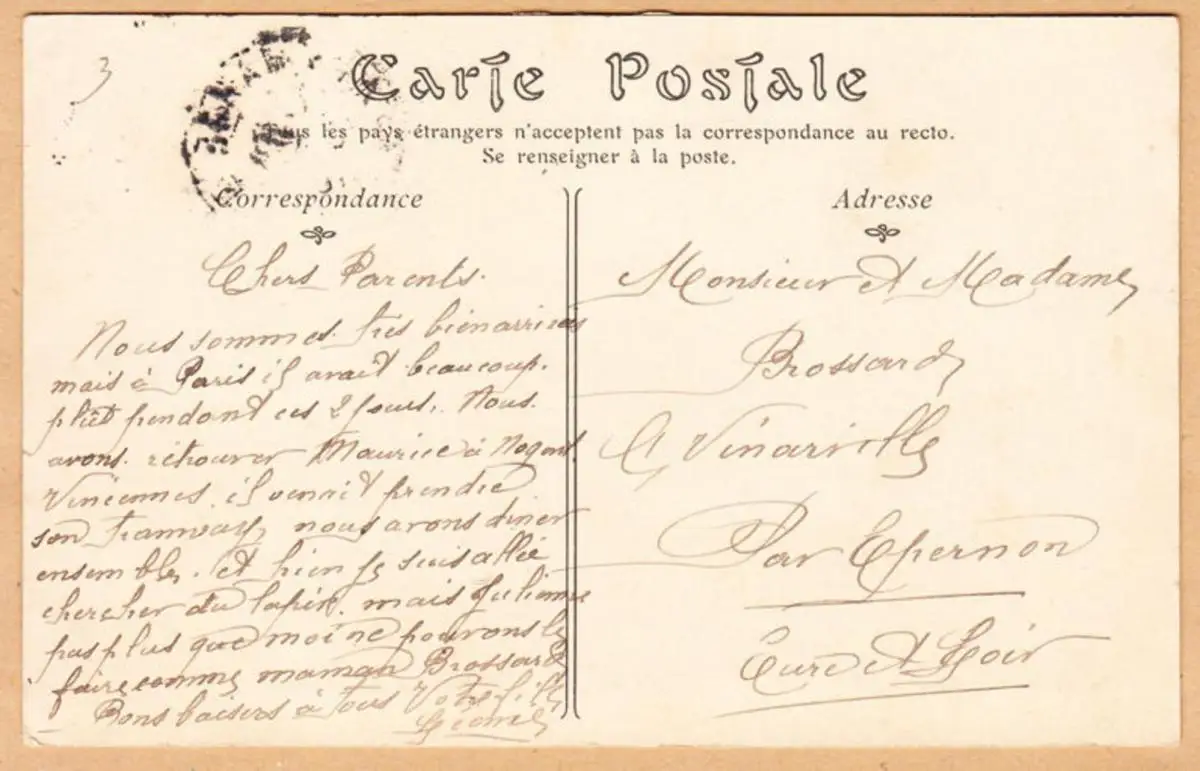 3
Carte Postale
Tous les pays étrangers n'acceptent pas la correspondance au recto.
Se renseigner à la poste.
Correspondance
Chers Parents.
Nous sommes très bien arrivés
mais à Paris il avait beaucoup.
plut pendant ces 2 jours. Nous.
avons. retrouver Maurice à Nogent
Vincennes. il venait prendre
son tramway nous avons diner
ensemble. et bien je suis allée
chercher du lapin. mais Julienne
pas plus que moi ne pourons le
faire comme maman Brossard
Bons baisers à tous Votre fille
Adresse
Monsieur et Madame
Brossard
A Vinarville
Par Epernon
Eure et Loir